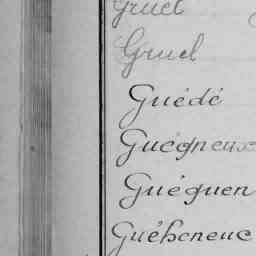 Gruel
Gruel
Guédé
Guégneux
Guéguen
Guéheneuc